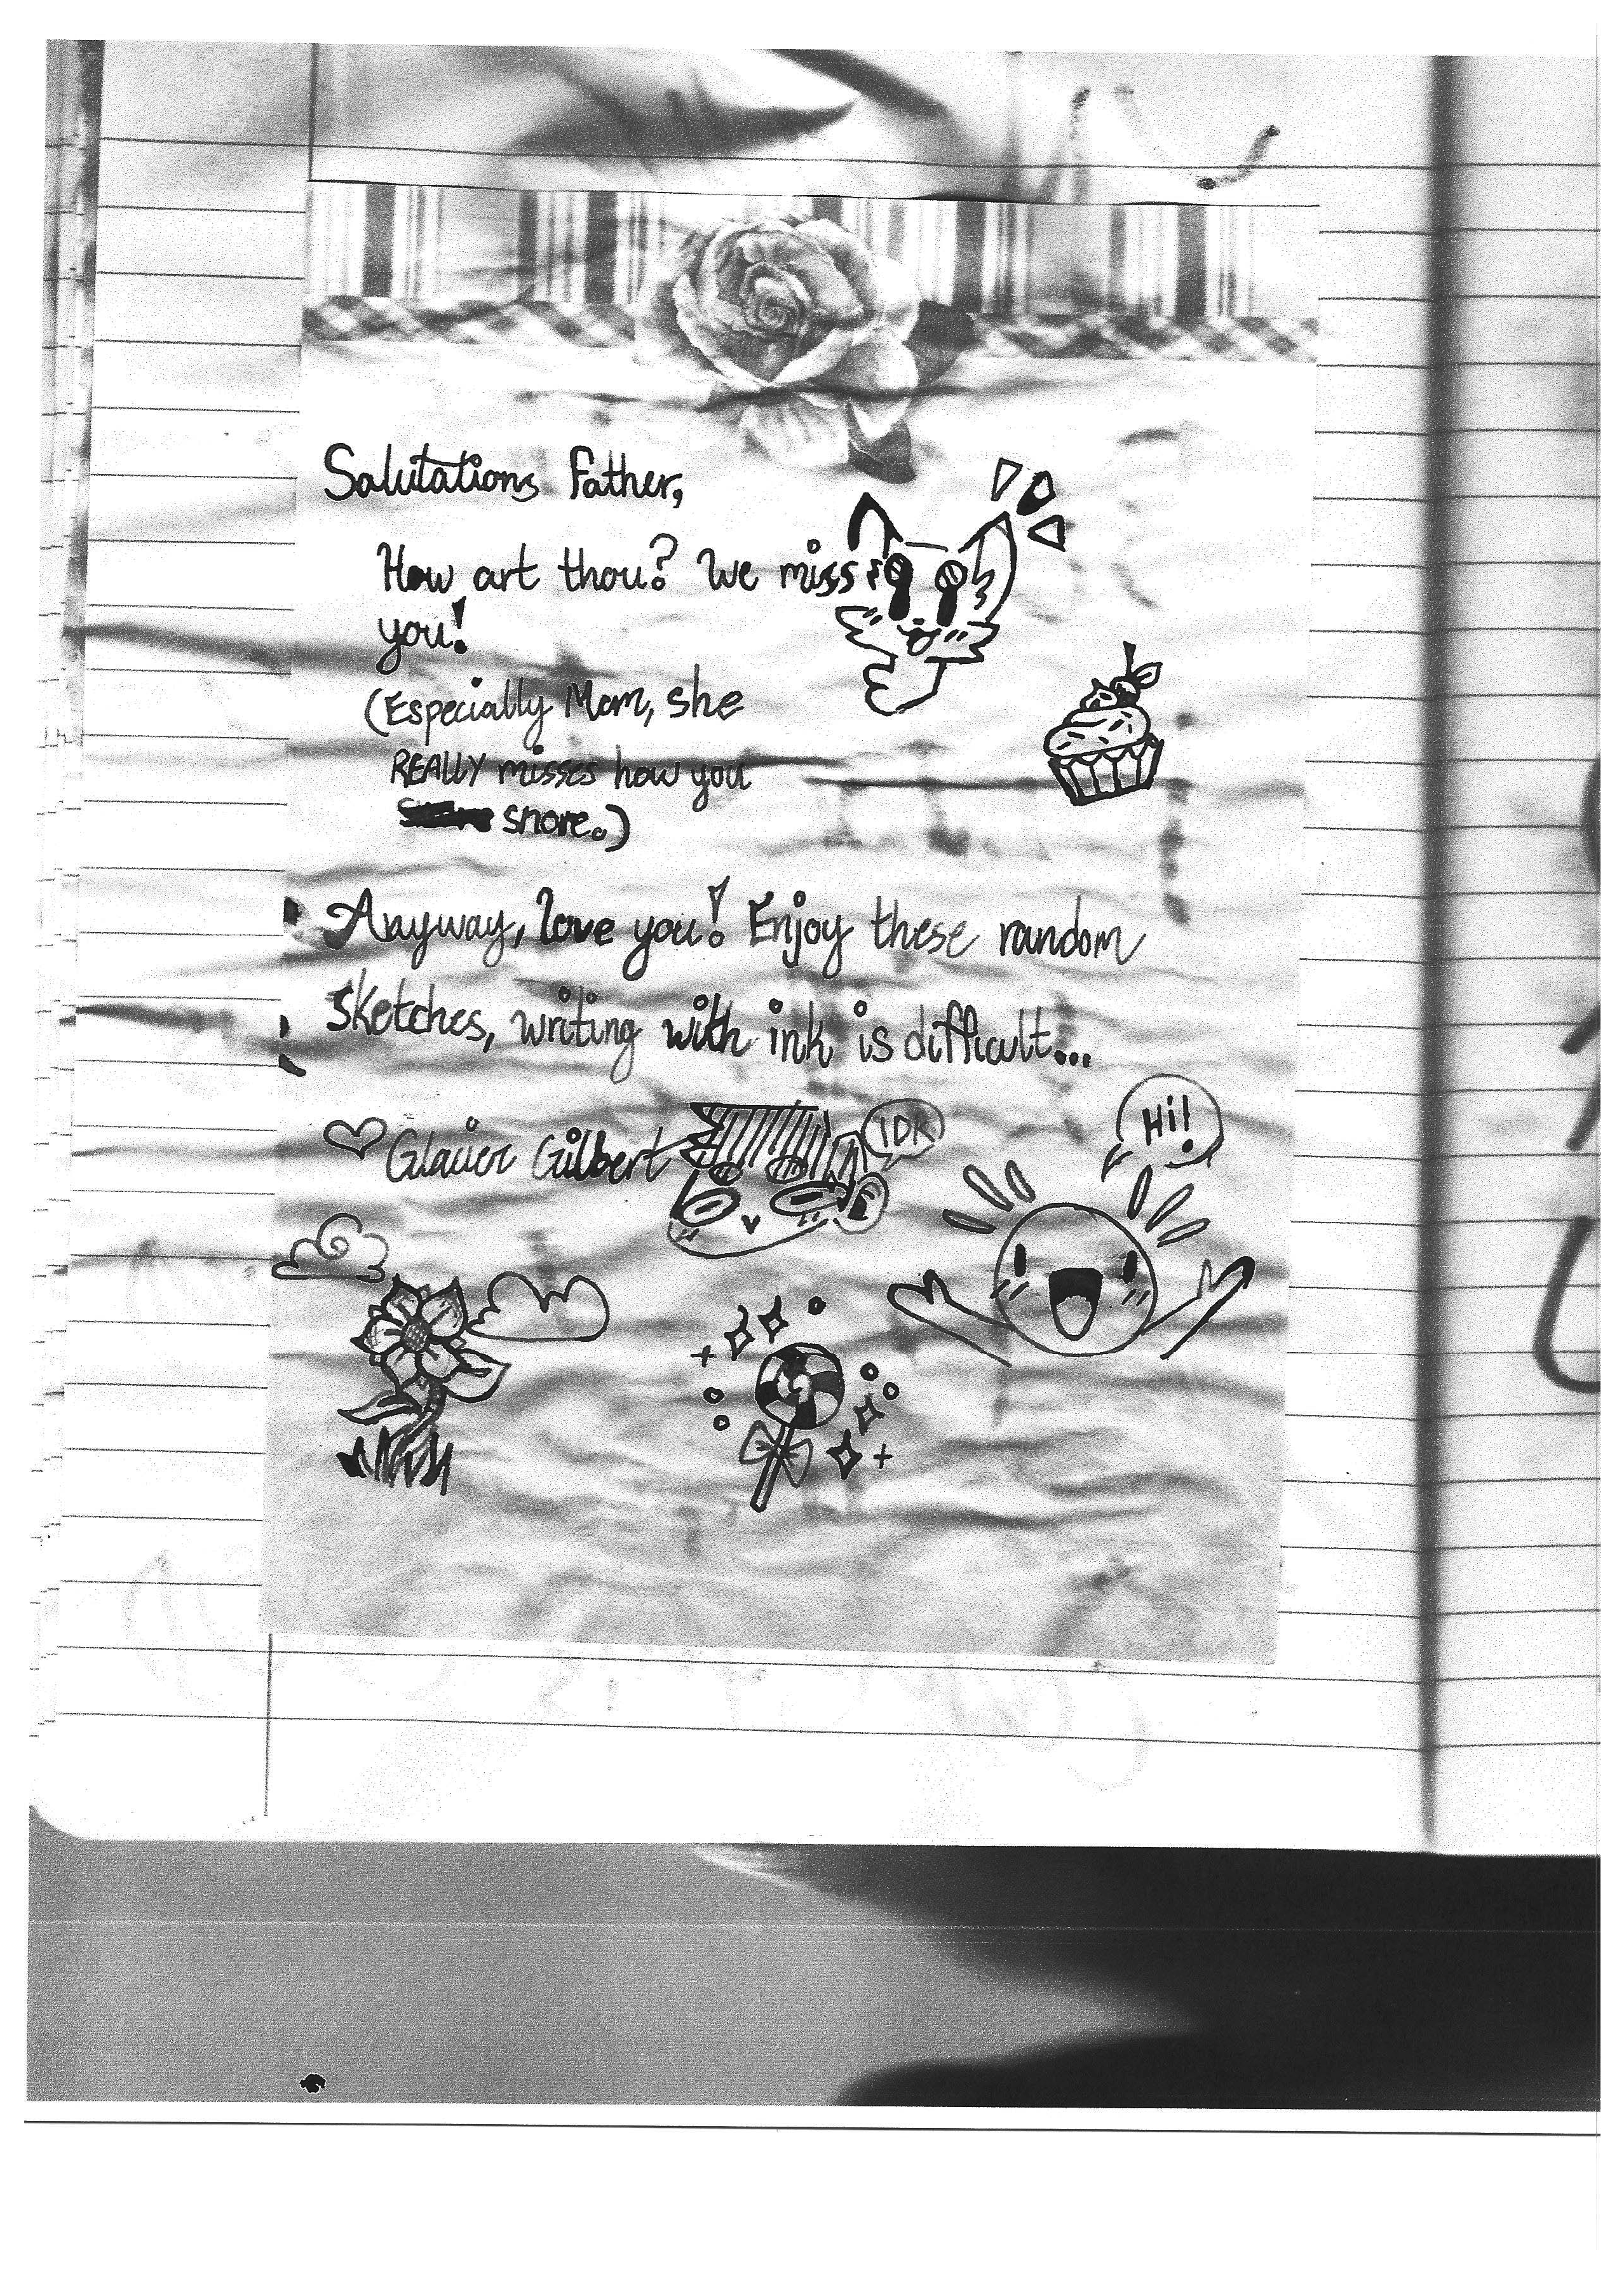 Salutations Father,
How art thou? We miss
you!
(Especially Mom, she
REALLY misses how you
snore.)
Anyway, love you! Enjoy these random
sketches, writing with ink is difficult...
Gilbert
IDK
Hi!